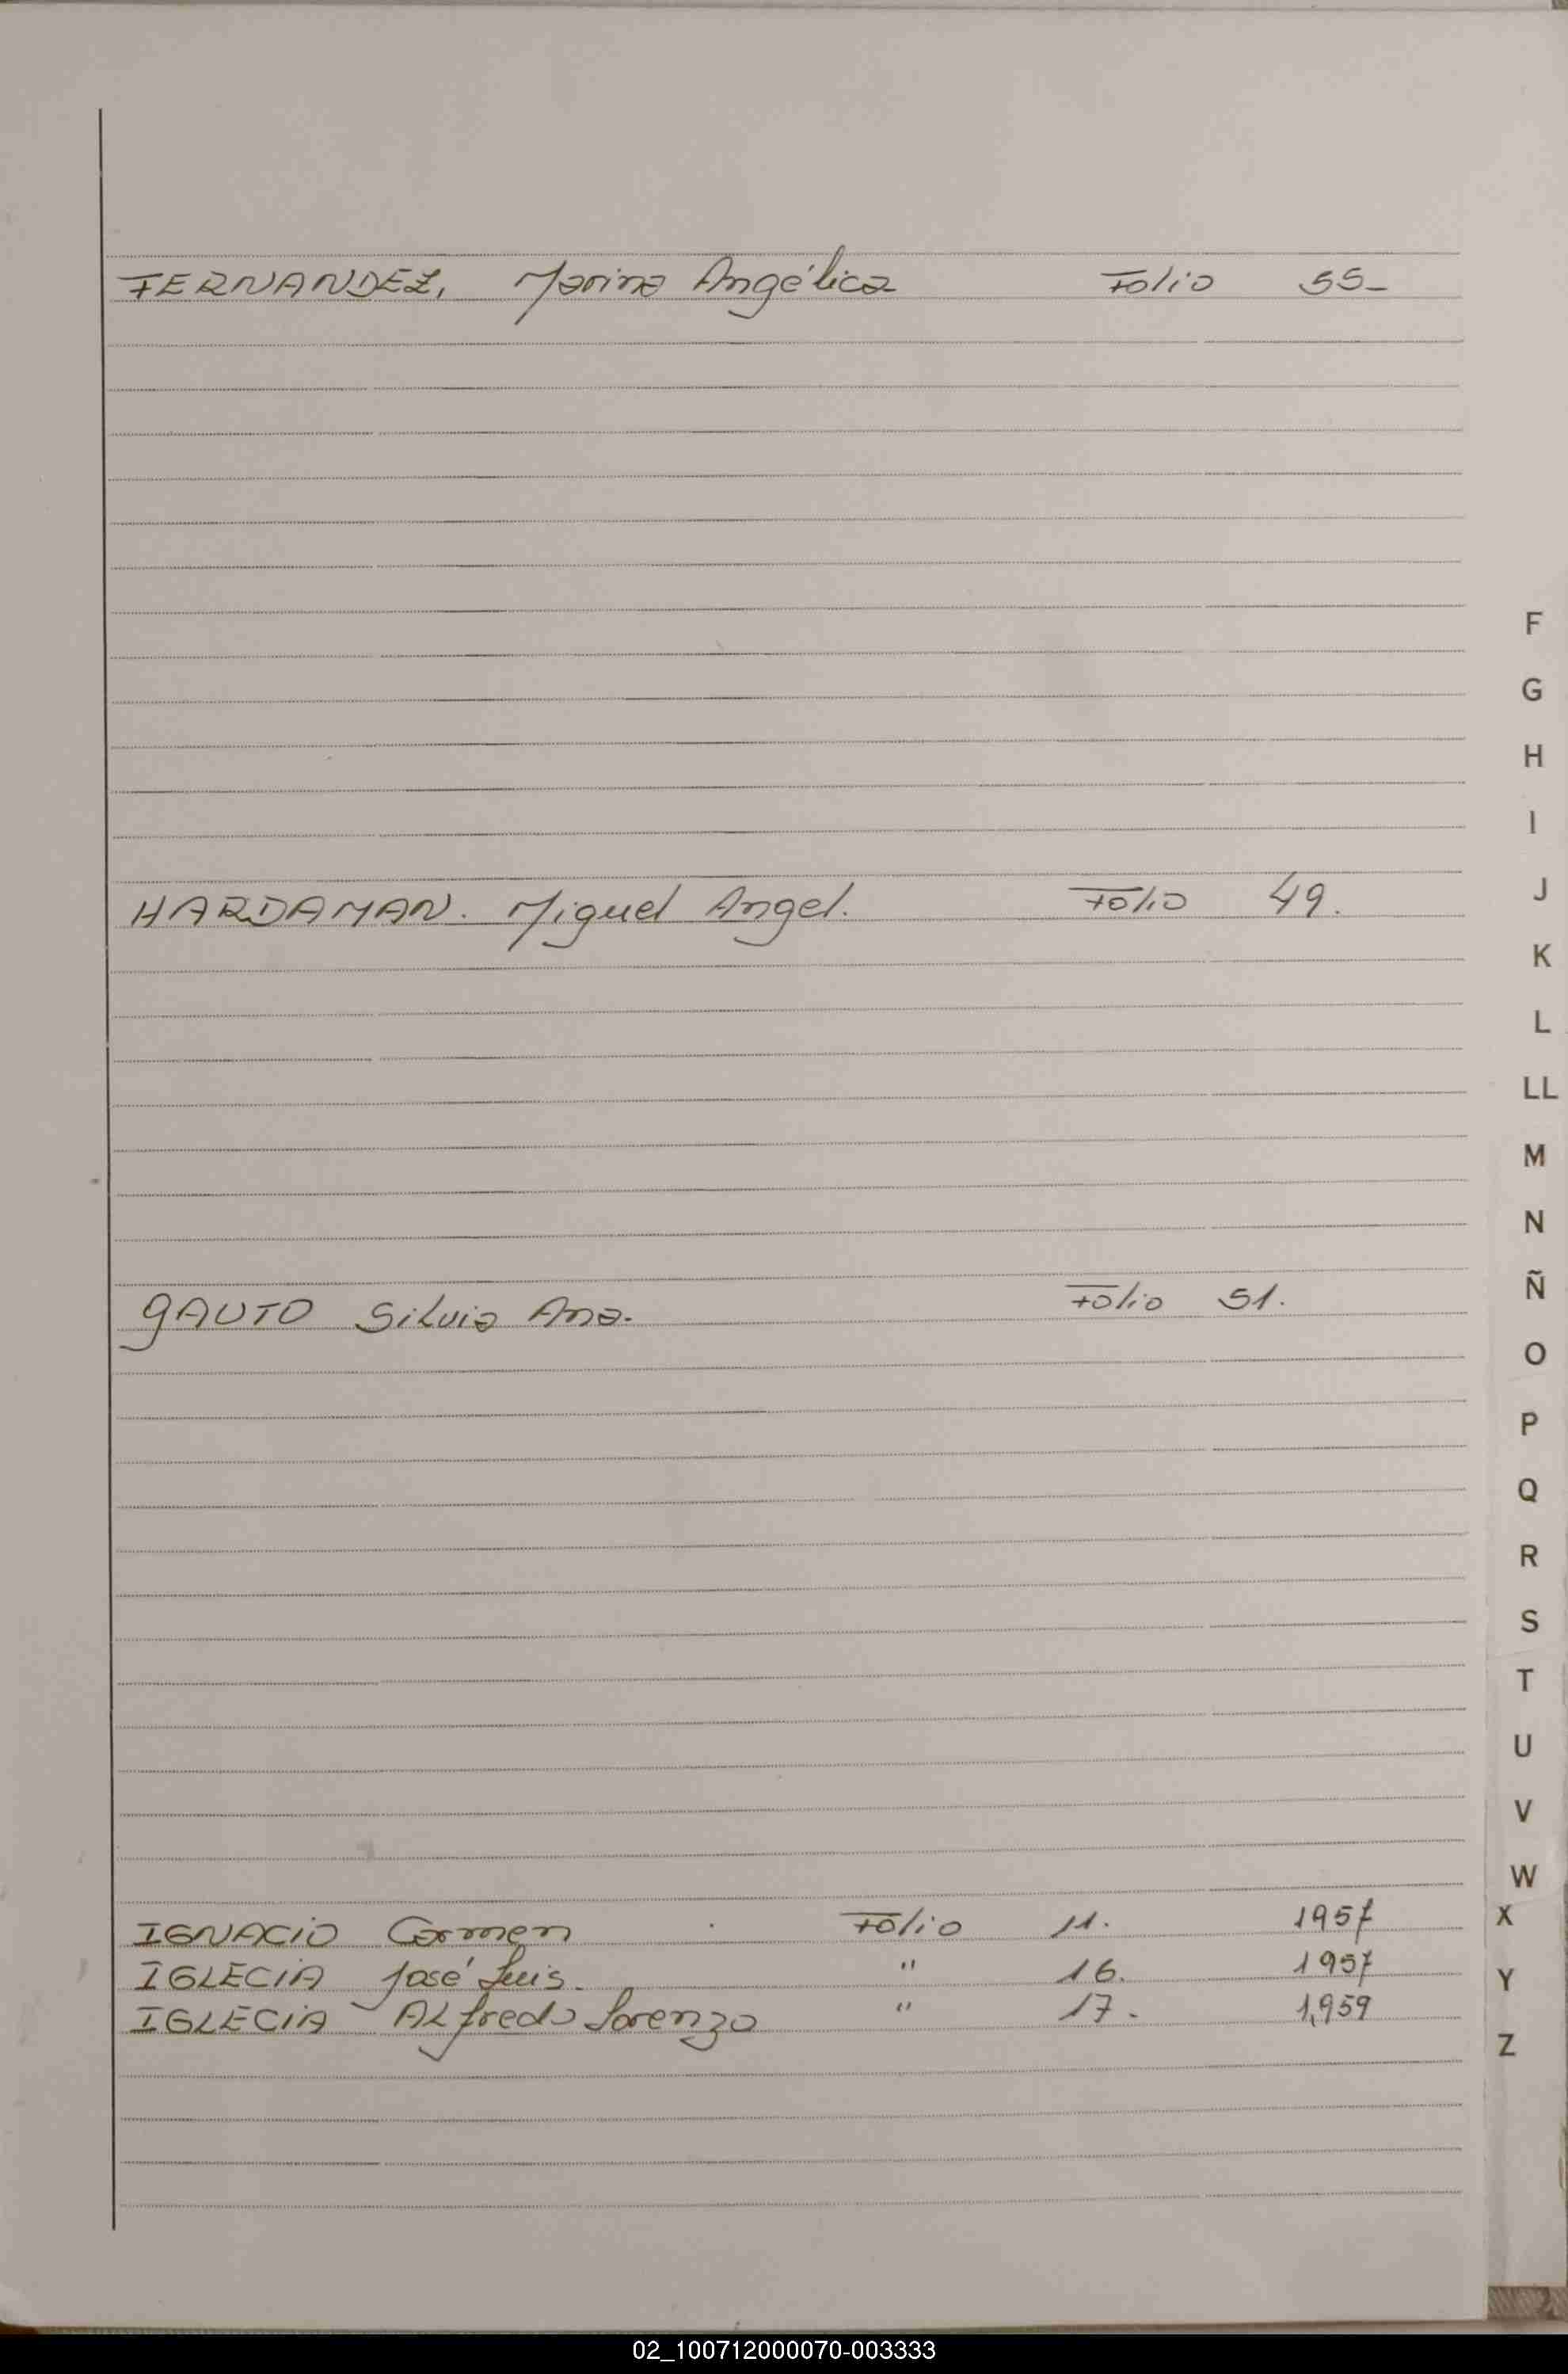 FERNANDEZ, Marina Angélica Folio 55-
F
G
H
I
HARDAMAN. Miguel Angel. Folio 49.
J
K
L
LL
M
N
Ñ
GAUTO Silvia Ana. Folio 51.
O
P
Q
R
S
T
U
V
W
IGNACIO Carmen Folio 11. 1957
X
IGLECIA José Luis. " 16. 1957
Y
IGLECIA Alfredo Lorenzo " 17. 1,959
Z
02_100712000070-003333